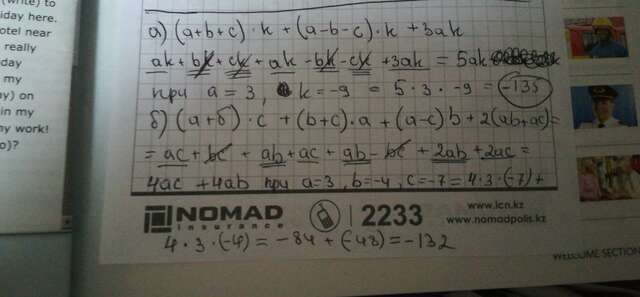 (write) to
day here.
otel near
really
day
my
ay) on
in my
my work!
o)?
а) (a+b+c)·k + (a-b-c)·k + 3ak
ak + bk + ck + ak - bk - ck + 3ak = 5ak
при a=3, k=-9 = 5·3·-9 = -135
б) (a+б)·c + (b+c)·a + (a-c)b + 2(ab+ac)=
= ac + bc + ab + ac + ab - bc + 2ab + 2ac =
4ac + 4ab при a=3, b=-4, c=-7 = 4·3·(-7)+
NOMAD
insurance
2233
www.icn.kz
www.nomadpolis.kz
4·3·(-4) = -84 + (-48) = -132
WELCOME SECTION